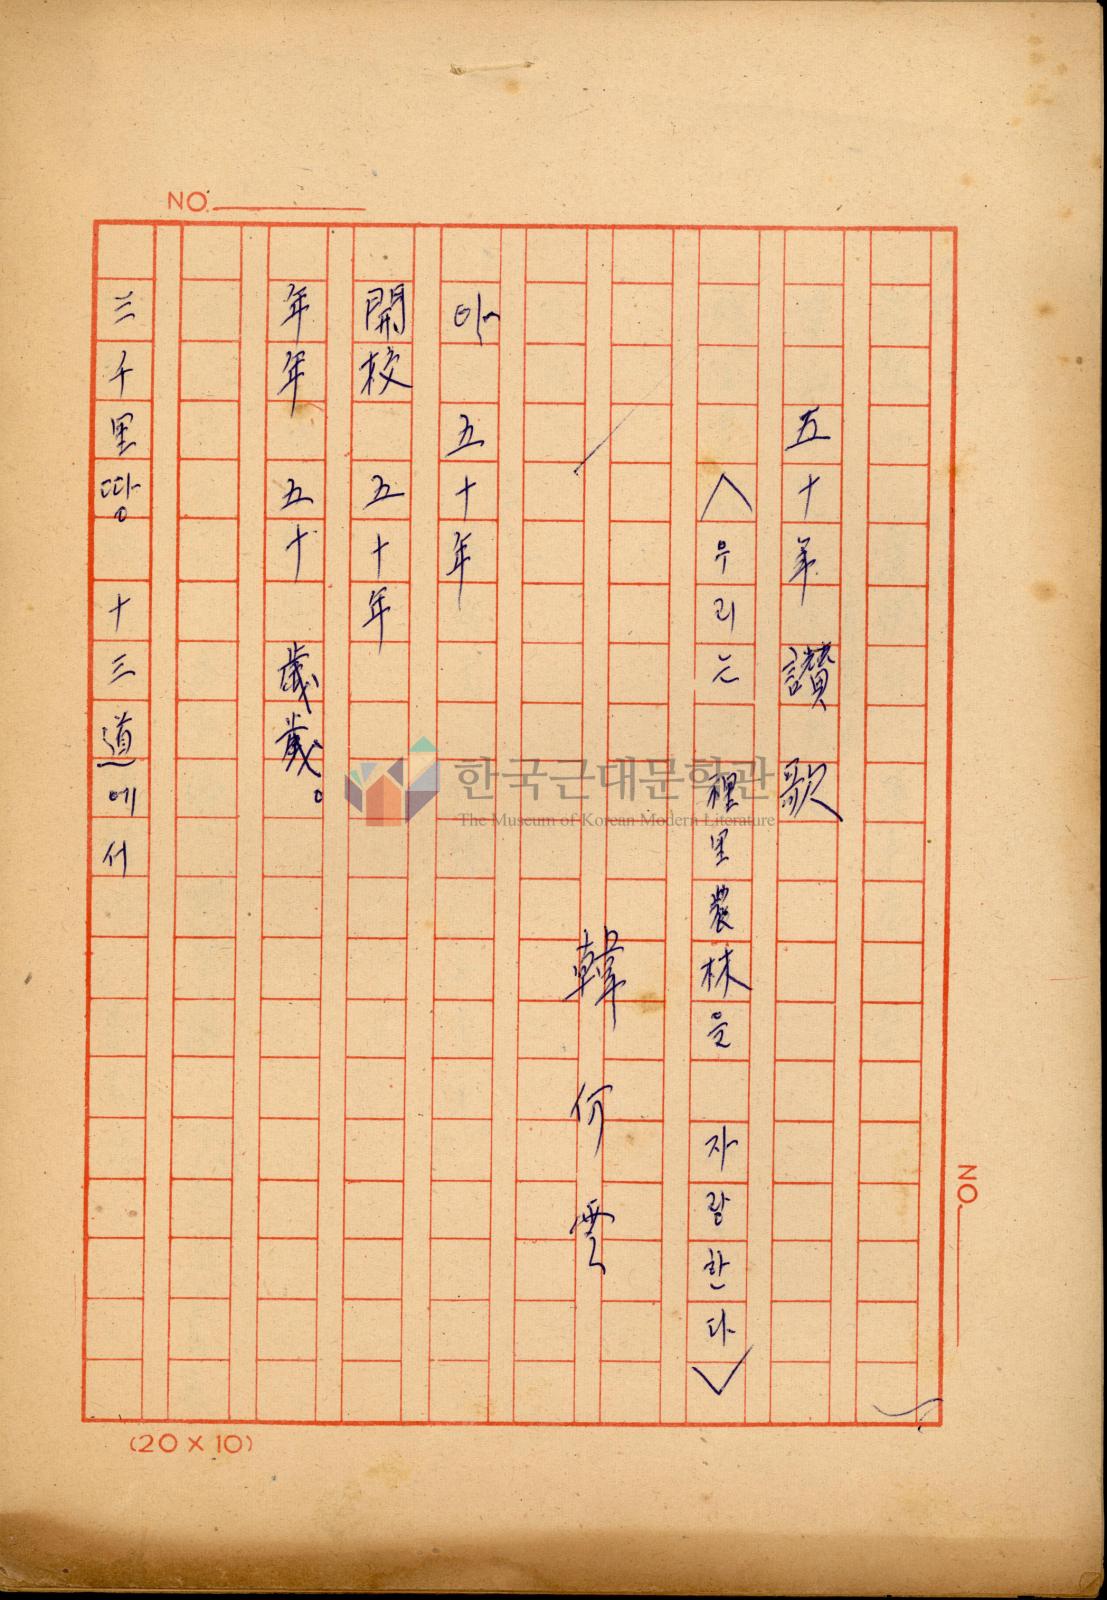 NO.
五十年 讚歌
<우리는 裡里農林을 자랑한다>
韓何雲
아 五十年
開校 五十年
年年 五十 歲歲。
三千里땅 十三道에서
NO.
(20×10)
한국근대문학관
The Museum of Korean Modern Literature